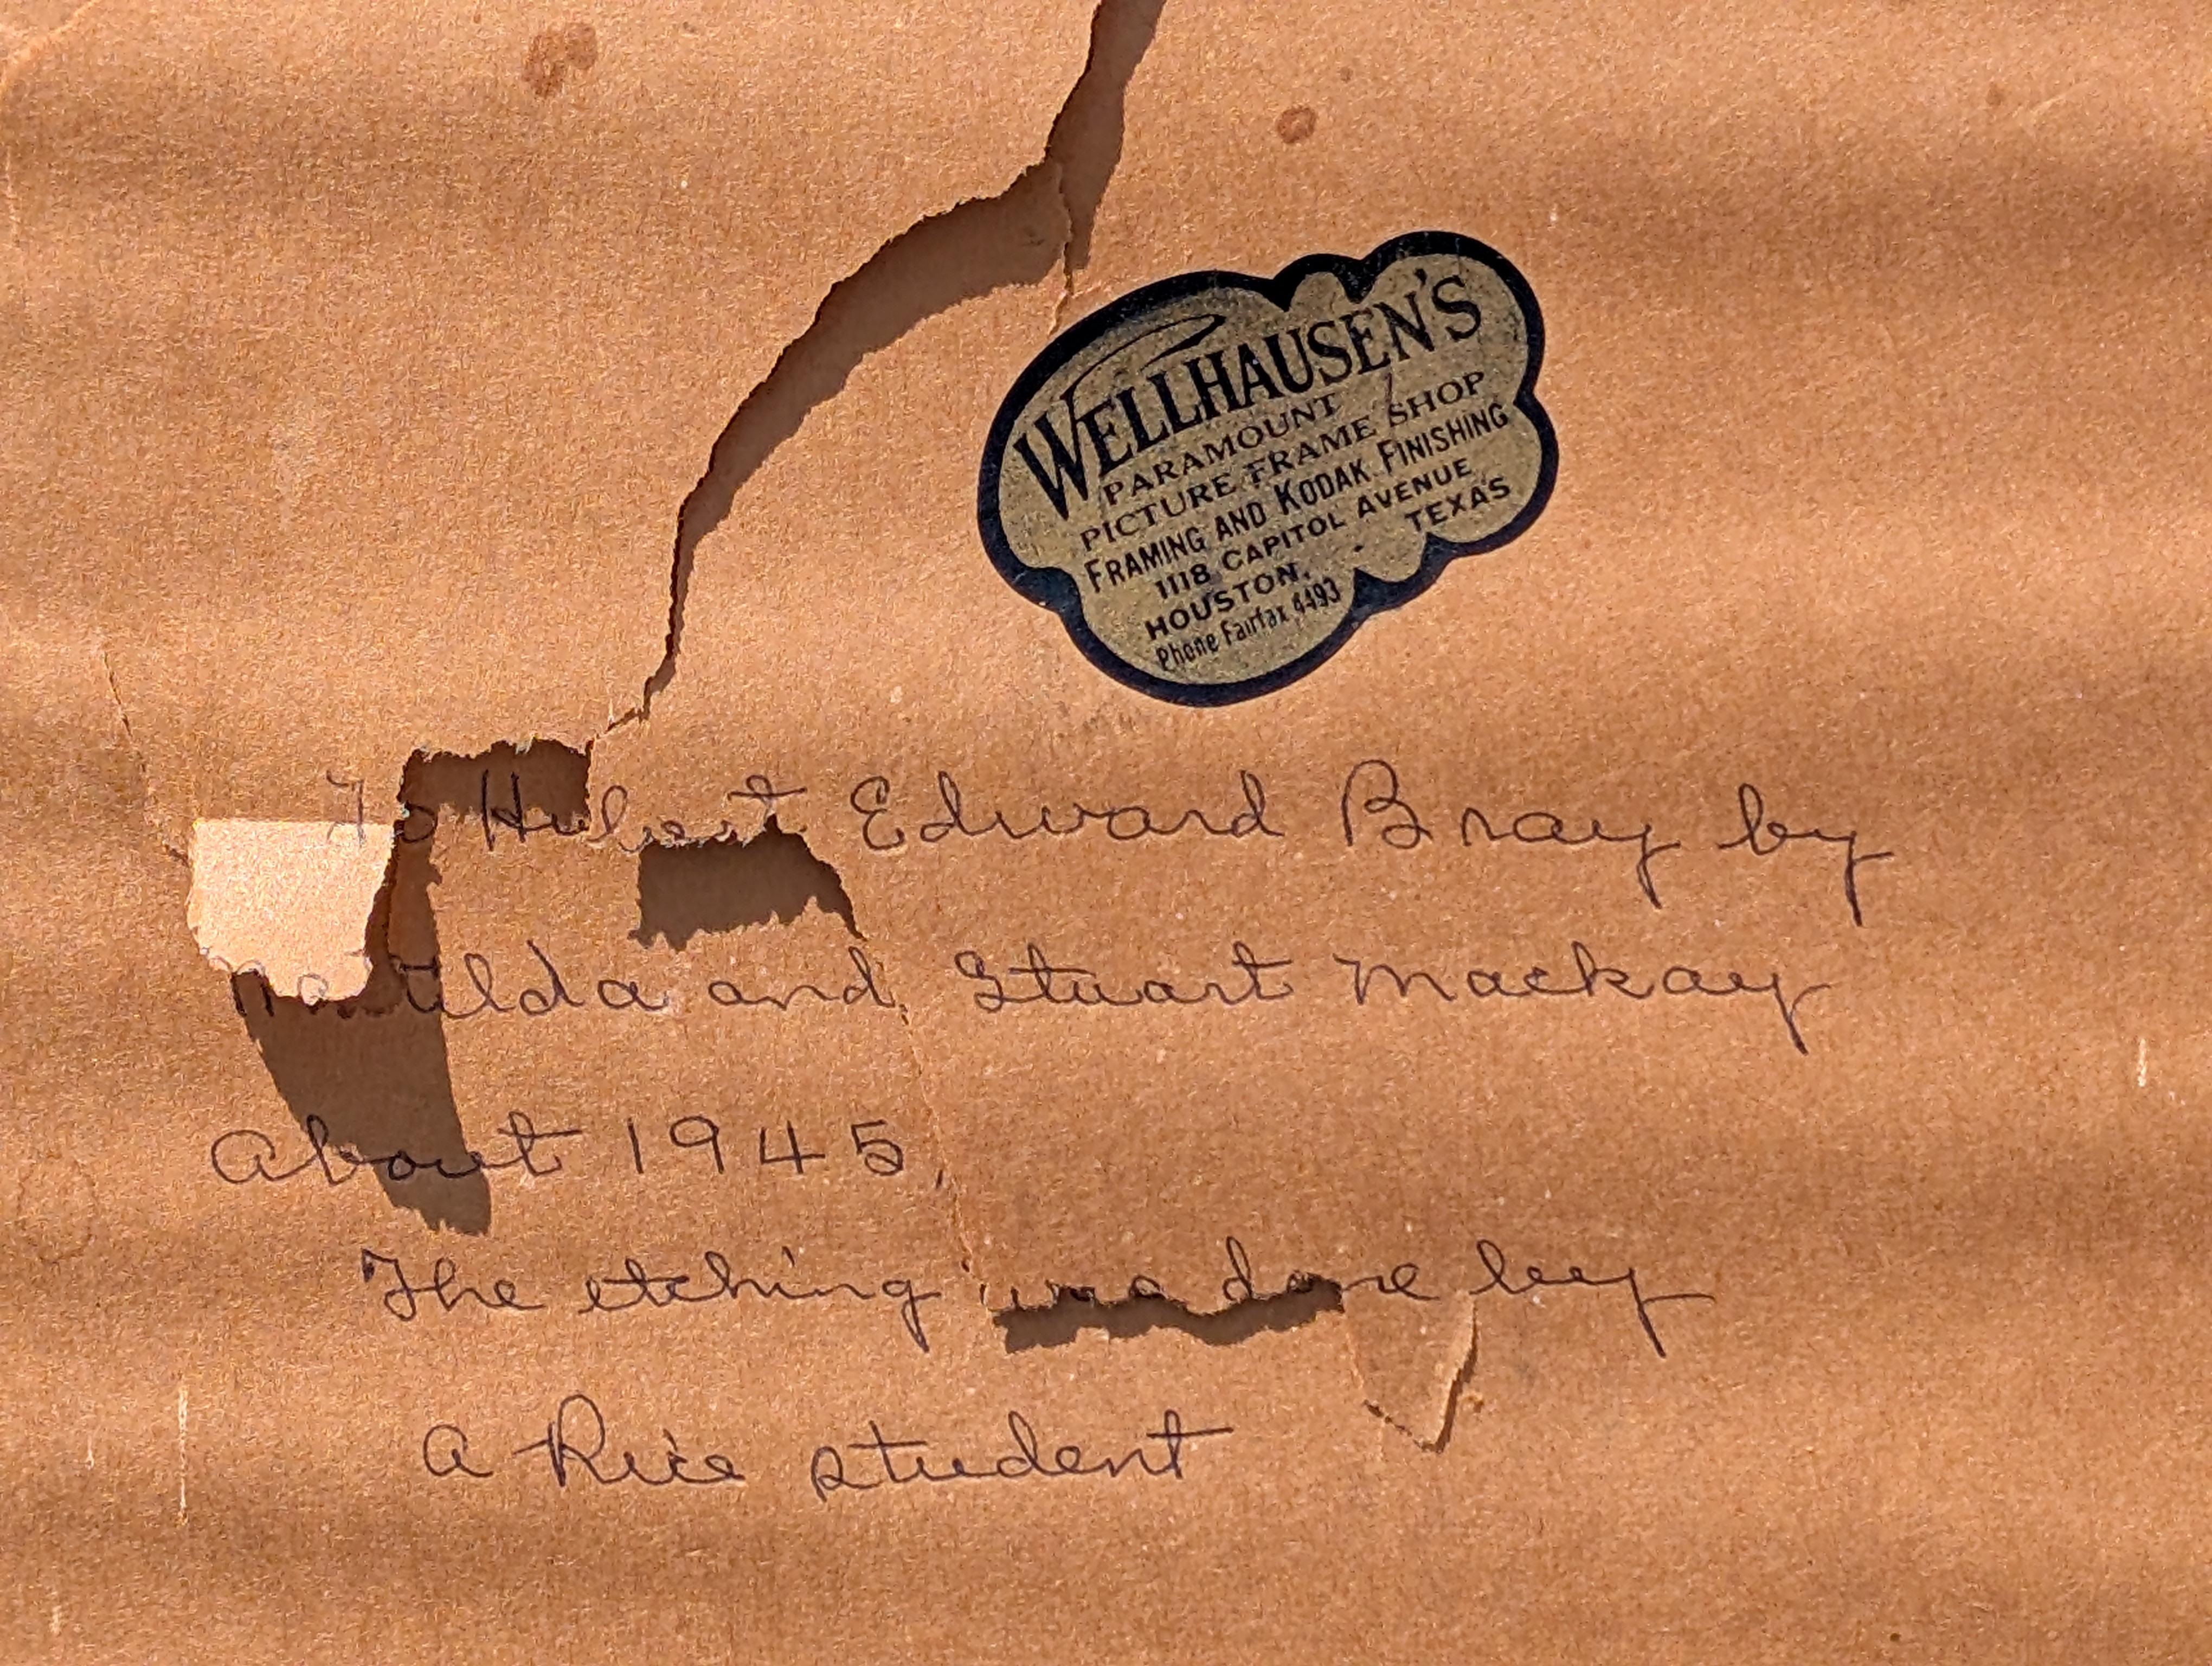 WELLHAUSEN'S
PARAMOUNT
PICTURE FRAME SHOP
FRAMING AND KODAK FINISHING
1118 CAPITOL AVENUE
HOUSTON, TEXAS
Phone Fairfax 4493
To Hubert Edward Bray by
Matilda and Stuart Mackay
About 1945,
The etching was done by
a Rice student